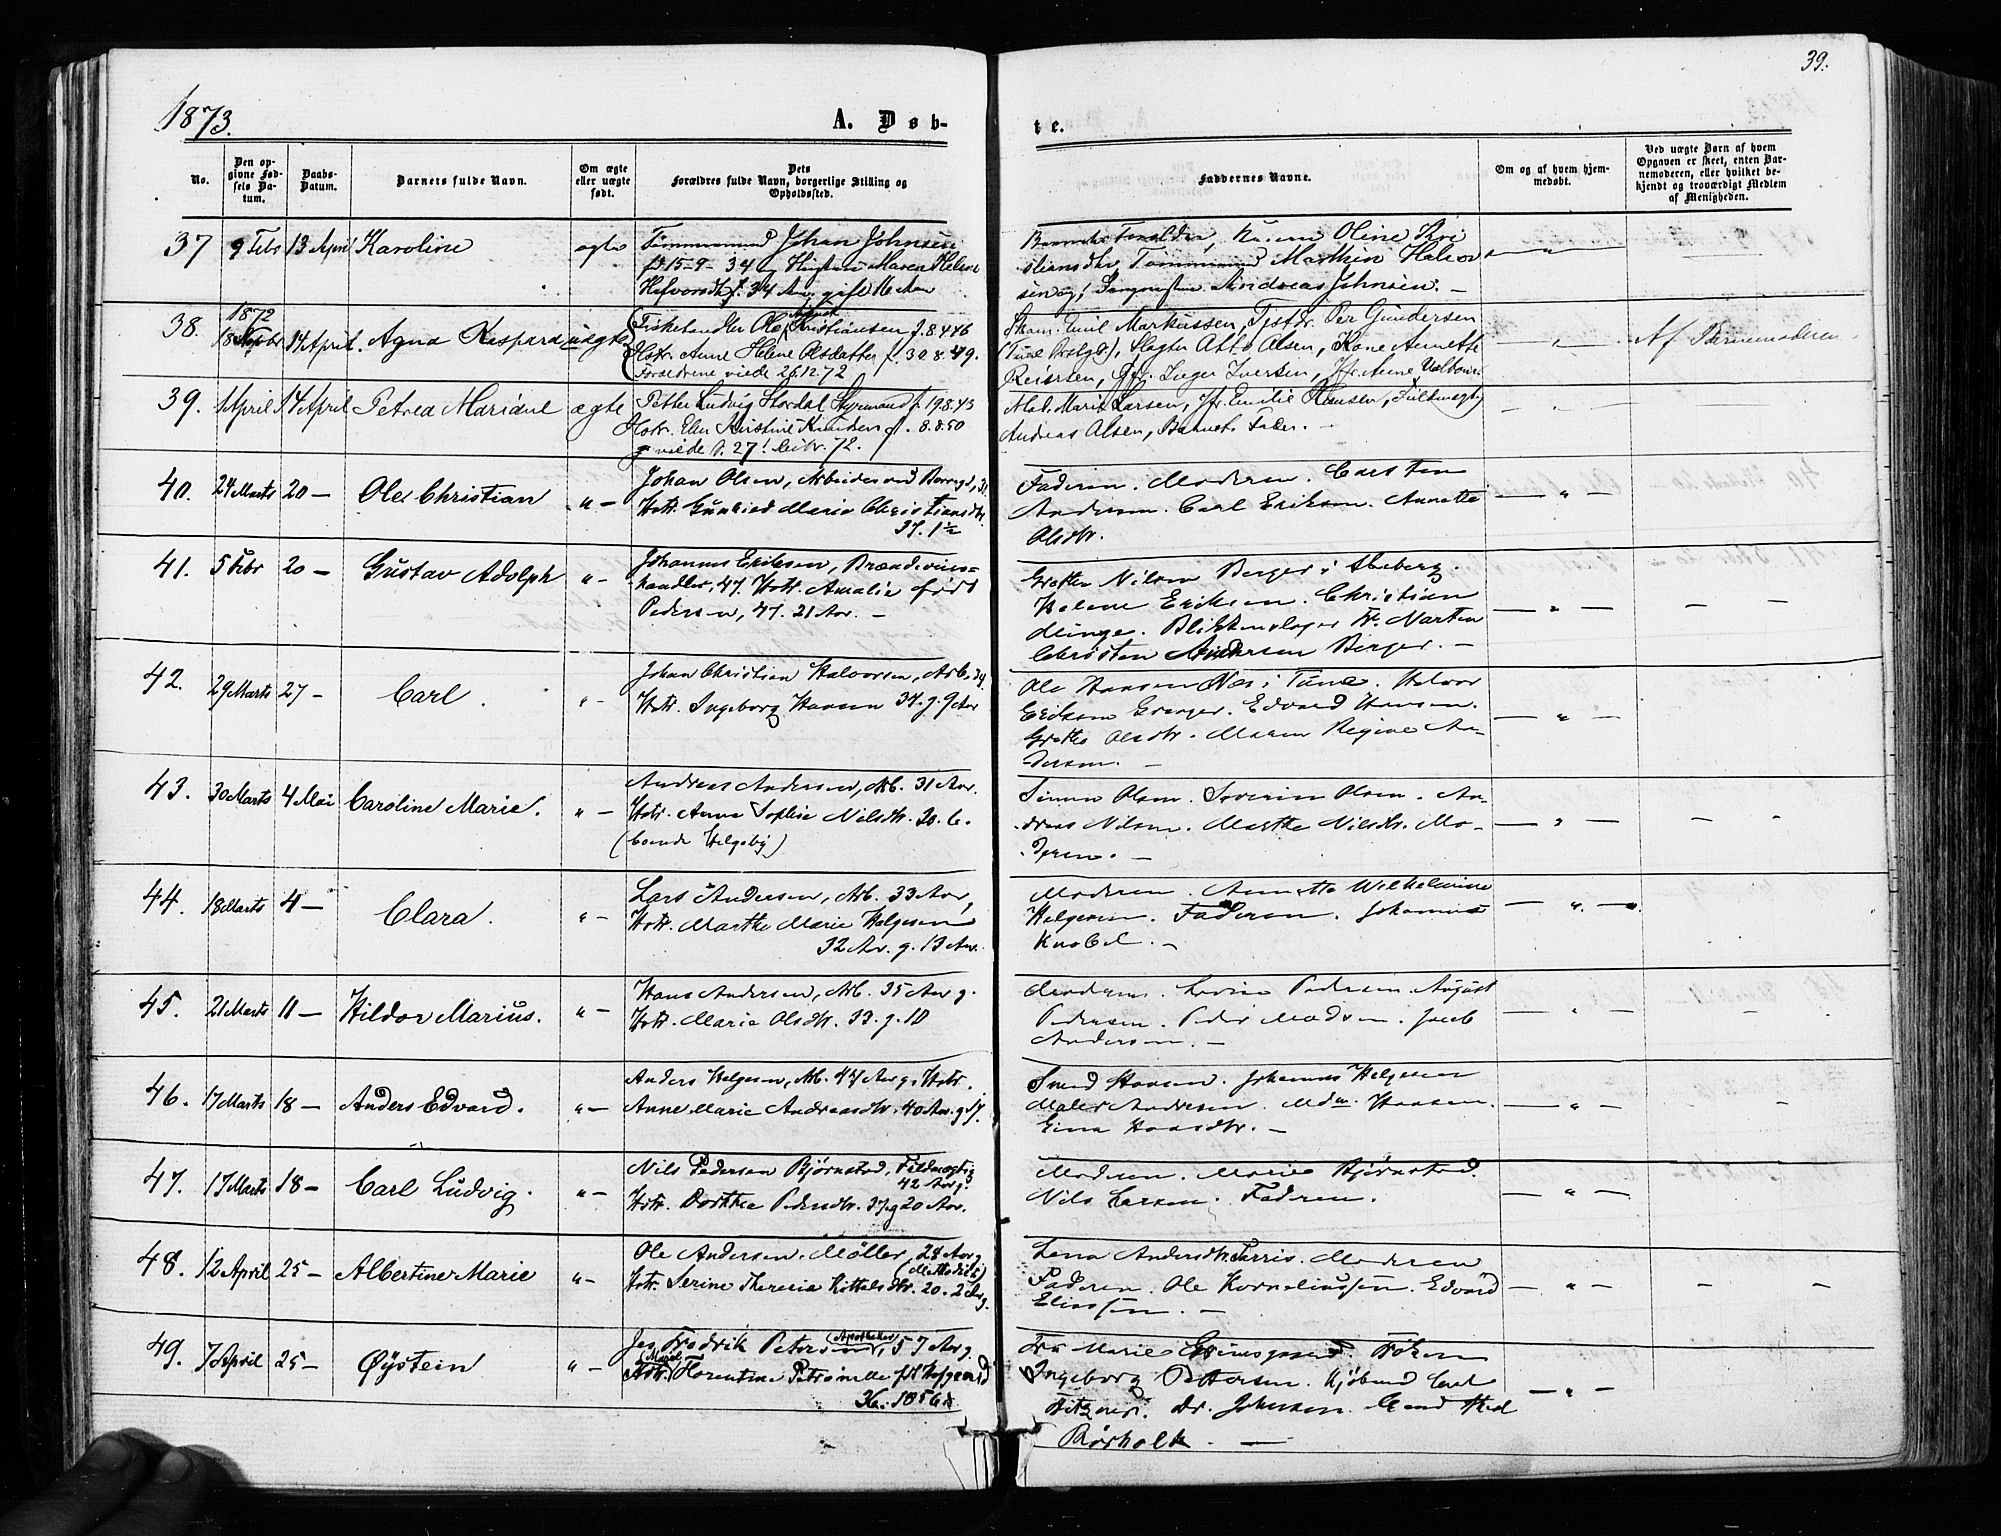 39.
1873.
A. Døb-
te.
No.
Den op-
givne Fød-
sels Da-
tum.
Daabs-
Datum.
Barnets fulde Navn.
Om ægte
eller uægte
født.
Dets
Forældres fulde Navn, borgerlige Stilling og
Opholdssted.
Faddernes Navne.
Om og af hvem hjem-
medøbt.
Ved uægte Børn af hvem
Opgaven er skeet, enten Bar-
nemoderen, eller hvilket be-
kjendt og troværdigt Medlem
af Menigheden.
37 9 Febr 13 April Karoline ægte Tømmermand Johan Johnsen
fd 15-9-34 og Hustru Maren Helene
34 Aar gift 16 Aar
Oline Kri
stiansdtr, Tømmermand Halvor
sen og Andreas Johnsen. —
38. 1872
18 14 April. Agna uægte Fiskehandler Ole August Kristiansen f. 8.4.46
Hstr. Anne Helene Olsdatter f. 30.8.49.
Forældrene viede 26.12.72
Emil Markussen, Per Gundersen
(Tune Prstgd), Slagter Otto Olsen, Kone Annette
Reiersen, Inger Iversen, Jfr. Anne
Af Barnemoderen.
39. 1 April 14 April Petrea ægte Petter Ludvig Styrmand f. 19.8.43
Hstr. Elen Kristine Knudsen f. 8.8.50
viede d. 27. 72.
Mad. Marie Larsen, Jfr. Emilie Hansen, Fuldmægt.
Andreas Olsen, Barnets Fader. —
40. 24 Marts 20 — Ole Christian " — Johan Olsen, Arbeidsmand
Hstr. Gunhild Marie Christiansdtr.
37. 1½
Faderen. Moderen. Carsten
Andersen. Carl Eriksen. Annette
Olsdtr.
— " —
41. 5 Febr 20 — Gustav Adolph " — Johannes Eriksen, Brændeviins-
handler, 47. Hstr. Amalie født
Pedersen, 47. 21 Aar. —
Grethe Nilsen Berger i Skeberg.
Helene Eriksen. Christian
Minge. Blikkenslager Fr. Marten
Andersen Berger. —
— " — — —
42. 29 Marts 27 — Carl. " — Johan Christian Halvorsen, Arb. 34.
Hstr. Ingeborg Hansen 34. g. 9 Aar
Ole Hansen Næs i Tune. Halvor
Eriksen Edvard Hansen.
Grethe Olsdtr. Maren Regine An-
dersen. —
— " —
43. 30 Marts 4 Mai Caroline Marie. " — Andreas Andersen, Arb. 31 Aar.
Hstr. Anne Sophie Nilsdtr. 30. 6.
(boende Helgeby)
Simen Olsen. Severin Olsen. An-
dreas Nilsen. Marthe Nilsdtr. Mo-
deren. —
— " — — "
44. 18 Marts 4 — Clara. " — Lars Andersen, Arb. 33 Aar,
Hstr. Marthe Marie Helgesen
32 Aar. g. 13 Aar.
Moderen. Annette Wilhelmine
Helgesen. Faderen. Johannes
Knobel. —
— " —
45. 21 Marts 11 — Hildor Marius. " — Hans Andersen, Arb. 35 Aar g.
Hstr. Marie Olsdtr. 33. g. 10
Moderen. Lovise Pedersen. August
Pedersen. Peder Madsen. Jacob
Andersen. —
— " — —
46. 17 Marts 18 — Anders Edvard. " — Anders Helgesen, Arb. 44 Aar g. Hstr.
Anne Marie Andreasdtr. 40 Aar. g 17.
Smed Hansen. Johannes Helgesen
Maler Andersen. Mdm. Hansen.
Eina Hansdtr. —
— " — —
47. 17 Marts 18 — Carl Ludvig. " — Nils Pedersen Bjørnstad, Fuldmægtig
42 Aar g.
Hstr. Dorthea Pedersdtr. 37 g 20 Aar.
Moderen. Marie Bjørnstad.
Nils Larsen. Faderen.
— " —
48. 12 April 25 — Albertine Marie " — Ole Andersen. Møller, 28 Aar g
(Methodist)
Hstr. Serine Theresia Kittelsdtr. 20. 2 Aar g.
Lena Andersdtr. Moderen
Faderen. Ole Korneliussen. Edvard
Eliassen. —
— " — — "
49. 7 April 25 — Øystein " — Jes Fredrik Petersen (Apotheker), 57 Aar g.
Hstr. Marie Florentine Petronelle fd Hofgaard
36. 1856
Fru Marie Frøken
Ingeborg Pettersen. Kjøbmd Carl
Dr. Johnsen. Cand Med
Børholt. —
— " —